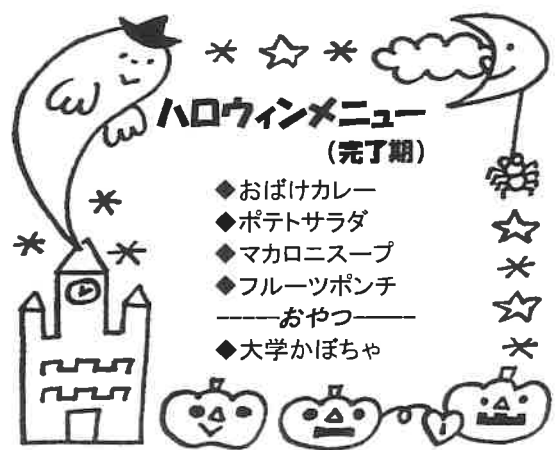 ハロウィンメニュー
(完了期)
◆おばけカレー
◆ポテトサラダ
◆マカロニスープ
◆フルーツポンチ
-----おやつ-----
◆大学かぼちゃ